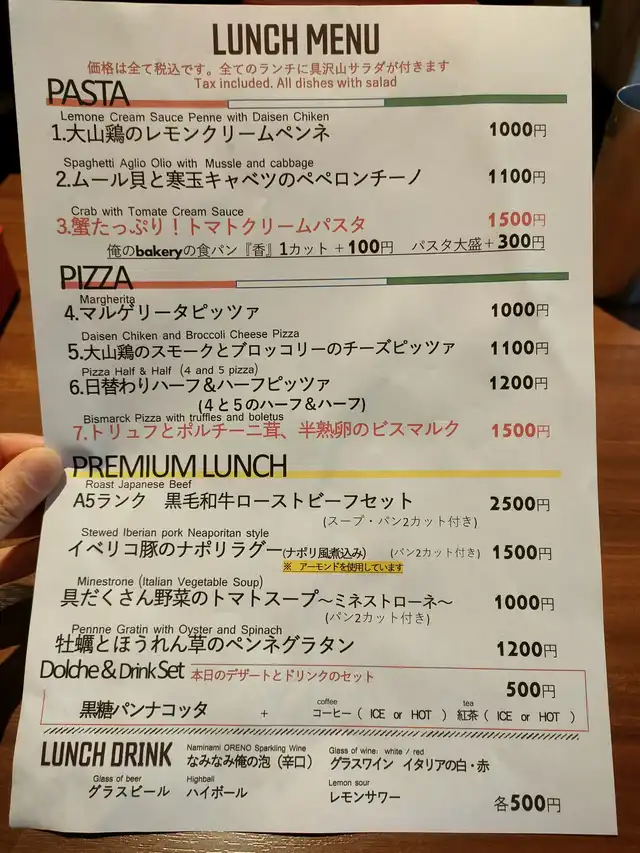 LUNCH MENU
価格は全て税込です。全てのランチに具沢山サラダが付きます
Tax included. All dishes with salad
PASTA
Lemone Cream Sauce Penne with Daisen Chiken
1.大山鶏のレモンクリームペンネ 1000円
Spaghetti Aglio Olio with Mussle and cabbage
2.ムール貝と寒玉キャベツのペペロンチーノ 1100円
Crab with Tomate Cream Sauce
3.蟹たっぷり！トマトクリームパスタ 1500円
俺のbakeryの食パン『香』1カット＋100円 パスタ大盛＋300円
PIZZA
Margherita
4.マルゲリータピッツァ 1000円
Daisen Chiken and Broccoli Cheese Pizza
5.大山鶏のスモークとブロッコリーのチーズピッツァ 1100円
Pizza Half & Half (4 and 5 pizza)
6.日替わりハーフ＆ハーフピッツァ 1200円
(4と5のハーフ＆ハーフ)
Bismarck Pizza with truffles and boletus
7.トリュフとポルチーニ茸、半熟卵のビスマルク 1500円
PREMIUM LUNCH
Roast Japanese Beef
A5ランク 黒毛和牛ローストビーフセット 2500円
(スープ・パン2カット付き)
Stewed Iberian pork Neaporitan style
イベリコ豚のナポリラグー(ナポリ風煮込み) (パン2カット付き) 1500円
※ アーモンドを使用しています
Minestrone (Italian Vegetable Soup)
具だくさん野菜のトマトスープ～ミネストローネ～ 1000円
(パン2カット付き)
Pennne Gratin with Oyster and Spinach
牡蠣とほうれん草のペンネグラタン 1200円
Dolche & Drink Set 本日のデザートとドリンクのセット
500円
coffee tea
黒糖パンナコッタ + コーヒー（ ICE or HOT ） 紅茶（ ICE or HOT ）
LUNCH DRINK
Naminami ORENO Sparkling Wine Glass of wine: white / red
なみなみ俺の泡（辛口） グラスワイン イタリアの白・赤
Glass of beer Highball Lemon sour
グラスビール ハイボール レモンサワー 各500円